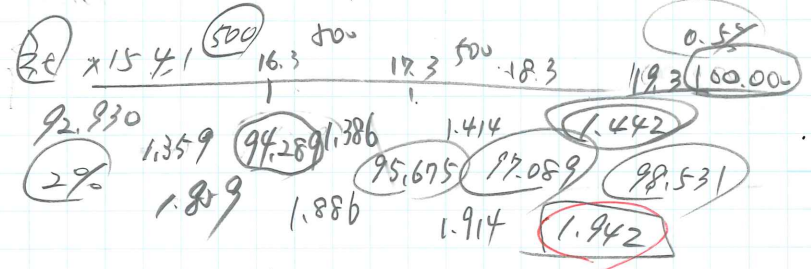 500 500 0.5%
×15.4.1 16.3 17.3 500 18.3 19.3 100.000
92.930 1.359 94.289 1.386 1.414 1.442
2% 95.675 97.089 98.531
1.859 1.886 1.914 1.942